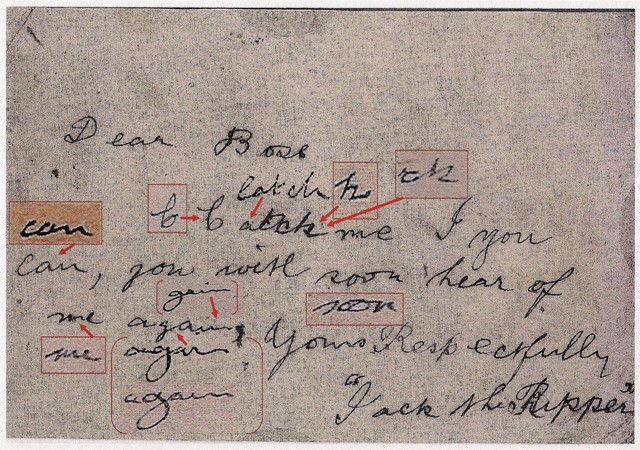 Dear Boss
catch k ch
can
C Catch me I you
can, you will soon hear of
gain
soon
me again, Yours Respectfully
me again
again
"Jack the Ripper"